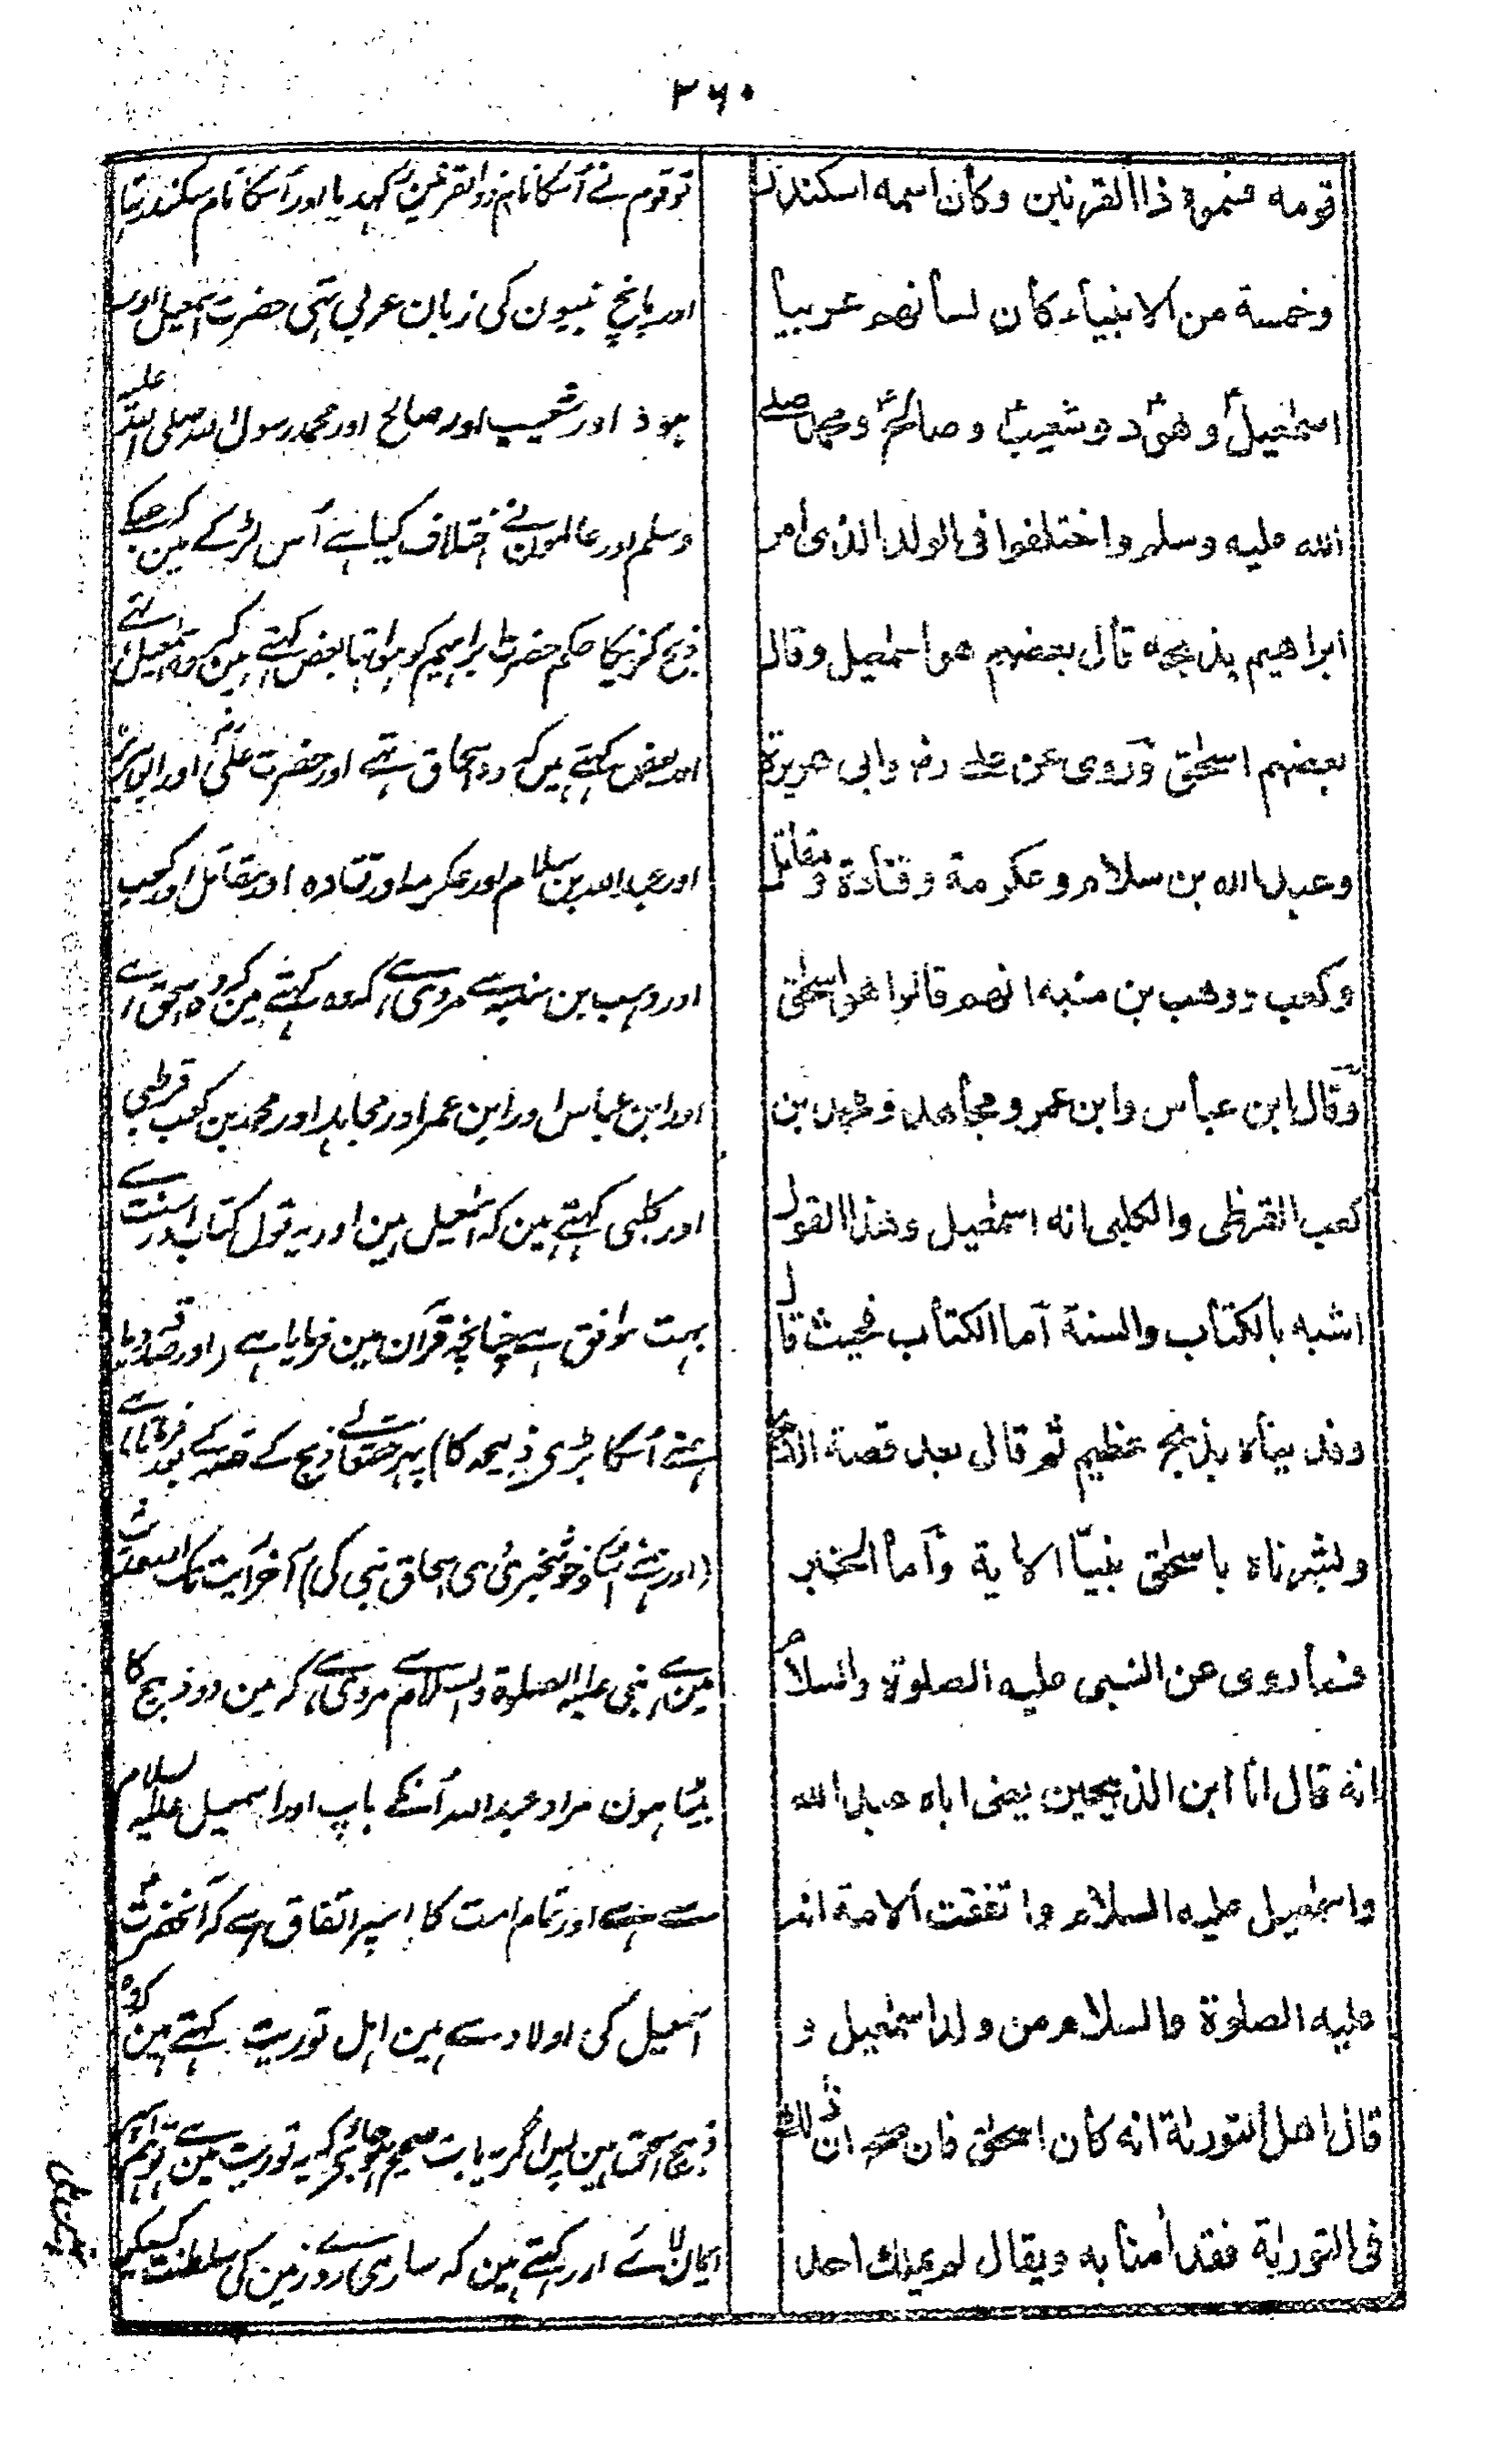 ۲۶۰
قومه فسموه ذا القرنين وكان اسمه اسكندر
وخمسة من الانبياء كان لسانهم عربيا
اسمٰعيل ؑ وهود ؑ وشعيب ؑ وصالح ؑ ومحمد صلے
الله عليه وسلم واختلفوا فى الولد الذى امر
ابراهيم بذبحه قال بعضهم هو اسمٰعيل وقال
بعضهم اسحٰق وروى عن علے رضـ وابى هريرة
وعبد الله بن سلام وعكرمة وقتادة ومقاتل
وكعب ووهب بن منبه انهم قالوا هو اسحٰق
وقال ابن عباس وابن عمر ومجاهد ومحمد بن
كعب القرظى والكلبى انه اسمٰعيل وهذا القول
اشبه بالكتاب والسنة أما الكتاب فحيث قال
وفديناه بذبح عظيم ثم قال بعد قصة الذبح
وبشرناه باسحٰق نبيّا الاية وأما الخبر
فما روى عن النبى عليه الصلوة والسلام
انه قال انا ابن الذبيحين يعنى اباه عبد الله
واسمٰعيل عليه السلام واتفقت الامة انه
عليه الصلوة والسلام من ولد اسمٰعيل و
قال اهل التورٰية انه كان اسحٰق فان صح ان ذٰلك
فى التورٰية فقد أمنا به ويقال لم يملك احد
تو قوم نے اُسکا نام ذوالقرنین کہدیا اور اُسکا نام سکندر تہا
اور پانچ نبیون کی زبان عربی تہی حضرت اسمٰعیل اور
ہود اور شعیب اور صالح اور محمد رسول اللہ صلی اللہ علیہ
وسلم اور عالمون نے اختلاف کیا ہے اُس لڑکے مین کہ جسکے
ذبح کرنیکا حکم حضرت ابراہیم کو ہوا تہا بعض کہتے ہین کہ وہ اسمٰعیل تہے
اور بعض کہتے ہین کہ وہ اسحاق تہے اور حضرت علی رضـ اور ابوہریرہ
اور عبداللہ بن سلام اور عکرمہ اور قتادہ اور مقاتل اور کعب
اور وہب بن منبہ سے مروی ہے کہ وہ کہتے ہین کہ وہ اسحٰق ہے
اور ابن عباس اور ابن عمر اور مجاہد اور محمد بن کعب قرظی
اور کلبی کہتے ہین کہ اسمٰعیل ہین اور یہ قول کتاب اور سنت سے
بہت موافق ہے چنانچہ قرآن مین فرمایا ہے (اور فدیہ دیا
ہمنے اُسکا بڑی ذبیحہ کا) پہر حقتعالے ذبح کے قصہ کے بعد فرماتا ہے
(اور ہمنے اُسکو خوشخبری دی اسحاق نبی کی) آخر آیت تک اور حدیث
مین ہے نبی علیہ الصلوۃ والسلام سے مروی ہے کہ مین دو ذبیح کا
بیٹا ہون مراد عبداللہ اُنکے باپ اور اسمعیل علیہ السلام
سے ہے اور تمام امت کا اسپر اتفاق ہے کہ آنحضرت
اسمٰعیل کی اولاد سے ہین اہل توریت کہتے ہین کہ وہ
ذبیح اسحٰق ہین پس اگر یہ بات صحیح ہو جائے کہ یہ توریت مین ہے تو ہم اسپر
ایمان لائے اور کہتے ہین کہ ساری روئے زمین کی سلطنت کسیکی